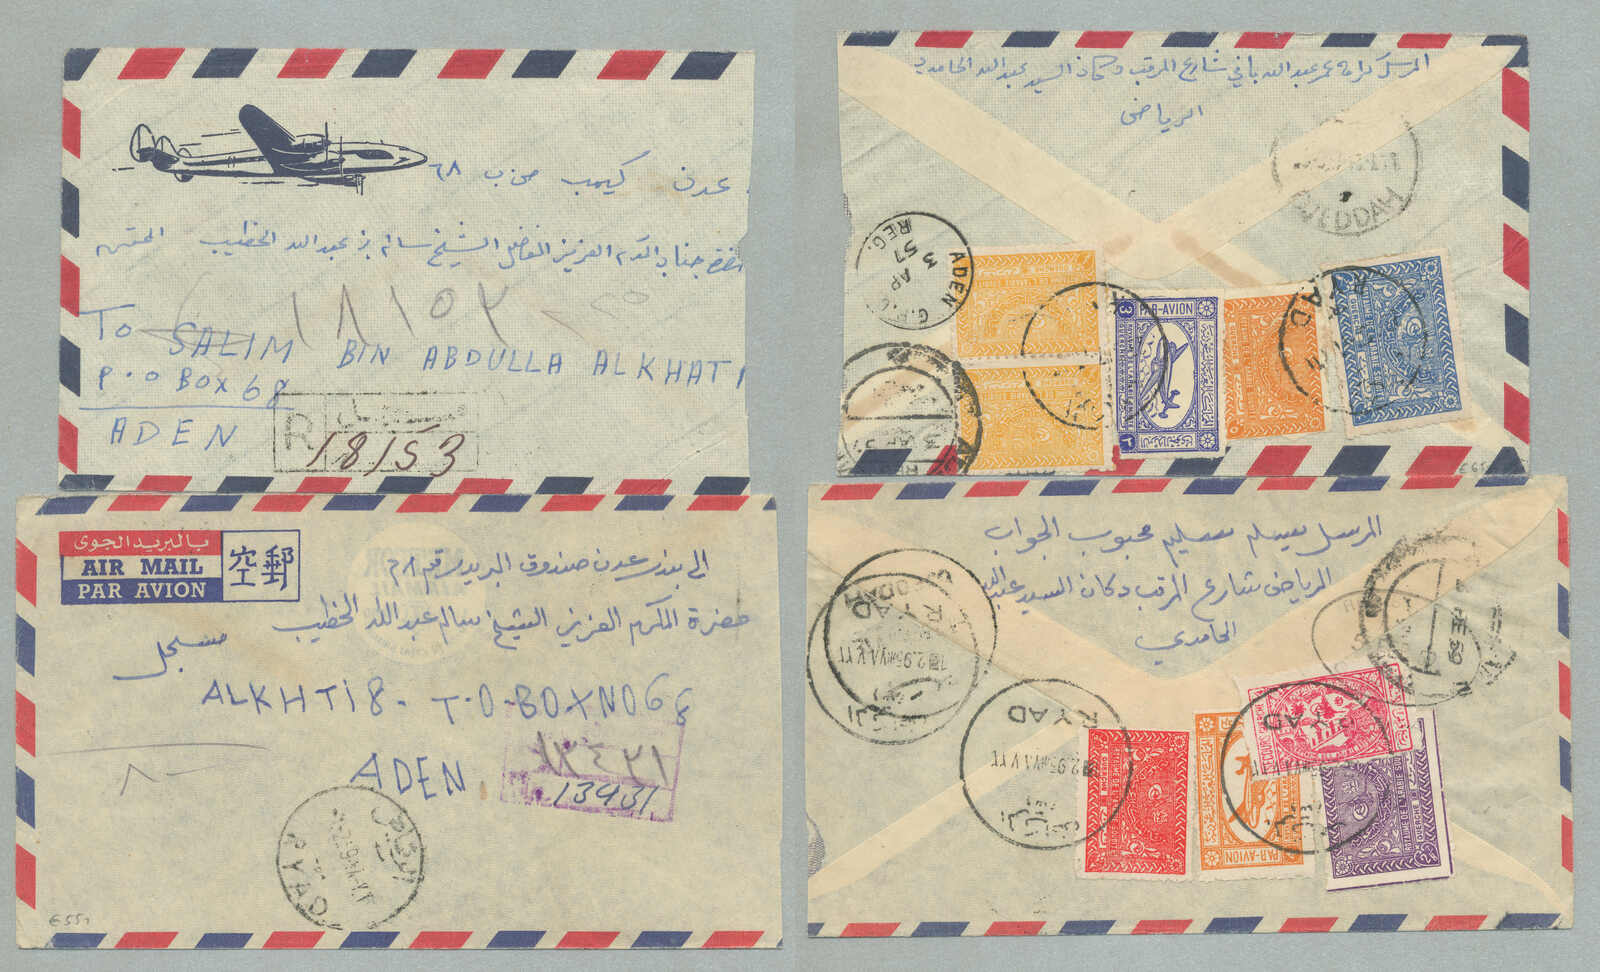 عدن كيمب ص.ب ٦٨
جناب المكرم العزيز الفاضل الشيخ سالم بن عبدالله الخطيب المحترم
١٨١٥٣
TO SALIM BIN ABDULLA ALKHATI
P.O BOX 68
ADEN
R مسجل
18153
المرسل كرامه عمر عبدالله باني شارع المرقب دكان السيد عبدالله الحامدي
الرياض
DJEDDAH
ADEN G.P.O.
3 AP 57
REG.
PAR-AVION
3
٣
RYAD
3 AP 57
بالبريد الجوى
AIR MAIL
PAR AVION
空郵
الى بندر عدن صندوق البريد رقم ٦٨
حضرة المكرم العزيز الشيخ سالم عبدالله الخطيب
مسجل
ALKHTI8 - T-O-BOXNO 68
ADEN
١٣٤٣١
13431
الرياض
RYAD
المرسل يسلم سليم محبوب الجواب
الرياض شارع المرقب دكان السيد عبدالله
الحامدي
RYAD
الرياض
RYAD
الرياض
RYAD
PAR-AVION
ROYAUME DE L'ARABIE SOUDITE